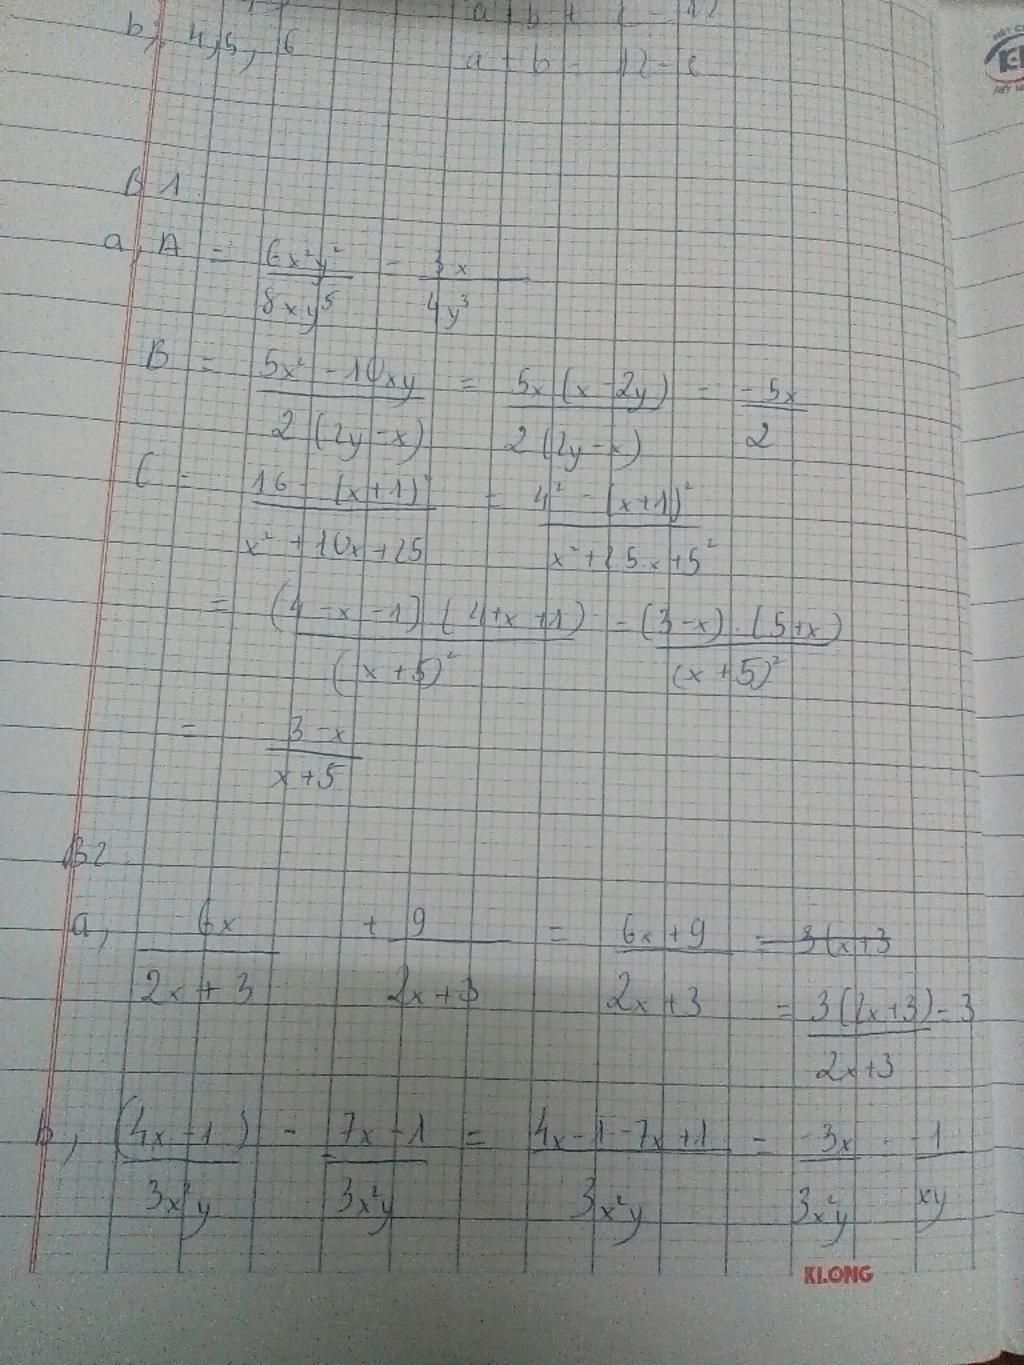 b, 4, 5, 6
a + b = 12 - c
B 1
a, A = 6x²y² / 8xy⁵ = 3x / 4y³
B = 5x² - 10xy / 2(2y - x) = 5x(x - 2y) / 2(2y - x) = -5x / 2
C = 16 - (x+1)² / x² + 10x + 25 = 4² - (x+1)² / x² + 2.5.x + 5²
= (4 - x - 1).(4 + x + 1) / (x + 5)² = (3 - x).(5 + x) / (x + 5)²
= 3 - x / x + 5
B2
a, 6x / 2x + 3 + 9 / 2x + 3 = 6x + 9 / 2x + 3
= 3(2x + 3) / 2x + 3 = 3
b, (4x - 1) / 3x²y - 7x - 1 / 3x²y = 4x - 1 - 7x + 1 / 3x²y = -3x / 3x²y = -1 / xy
KLONG